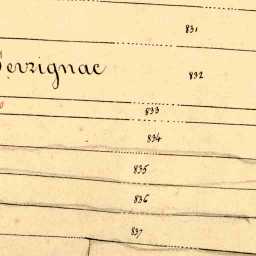 831
832
833
834
835
836
837